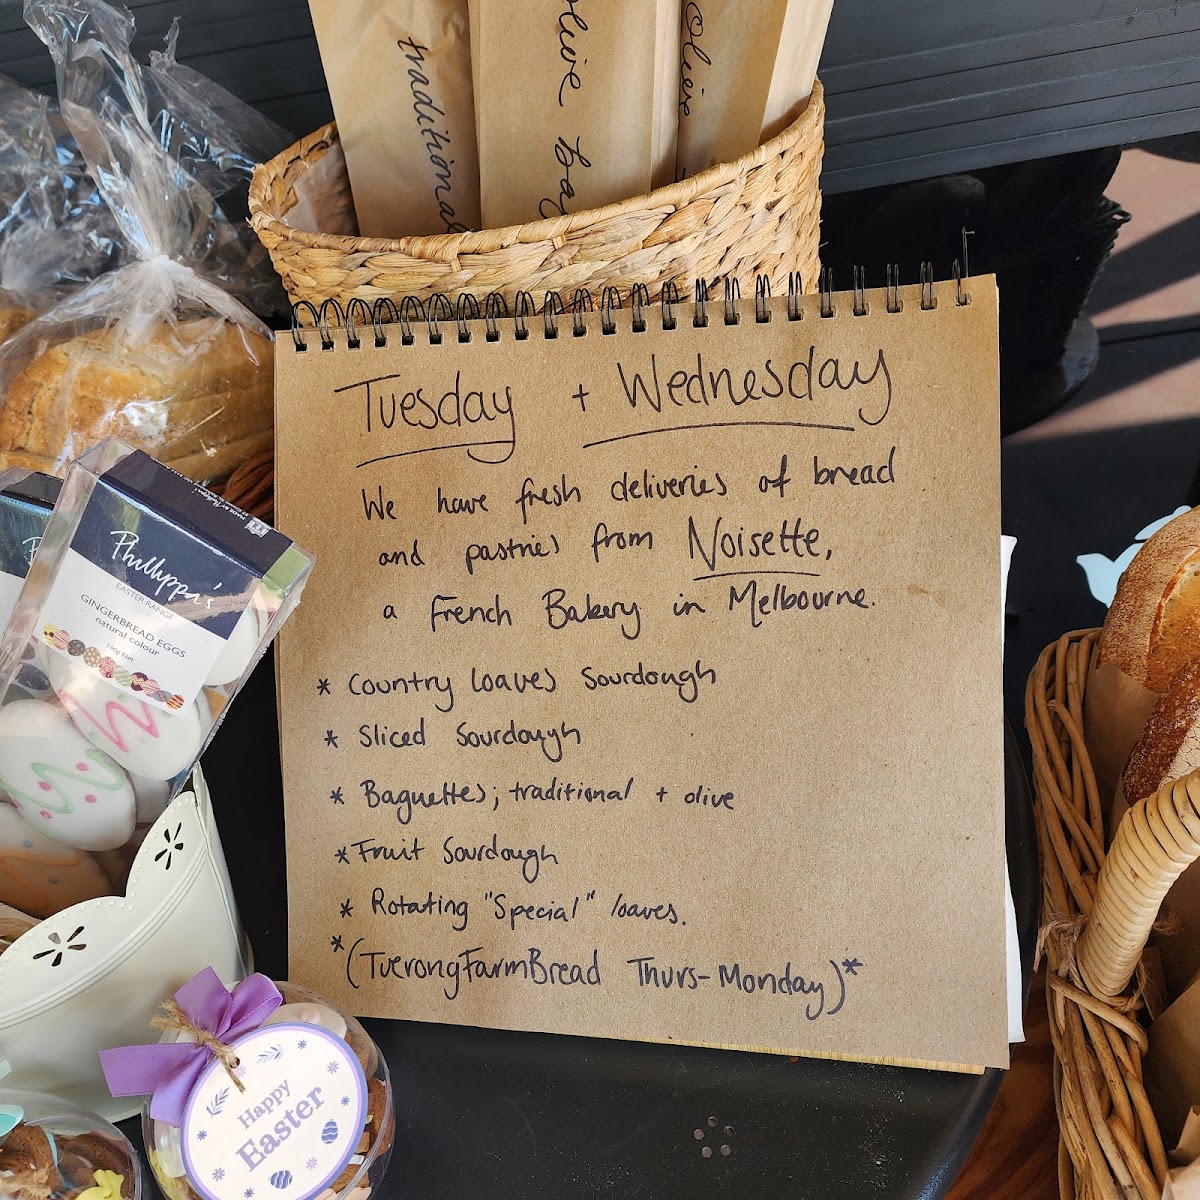 traditional
olive bag
olive
Tuesday + Wednesday
We have fresh deliveries of bread
and pastries from Noisette,
a French Bakery in Melbourne.
* Country Loaves Sourdough
* Sliced Sourdough
* Baguettes; traditional + olive
* Fruit Sourdough
* Rotating "Special" loaves.
*(TuerongFarmBread Thurs-Monday)*
Phillippa's
EASTER RANGE
GINGERBREAD EGGS
natural colour
190g Net
Happy
Easter